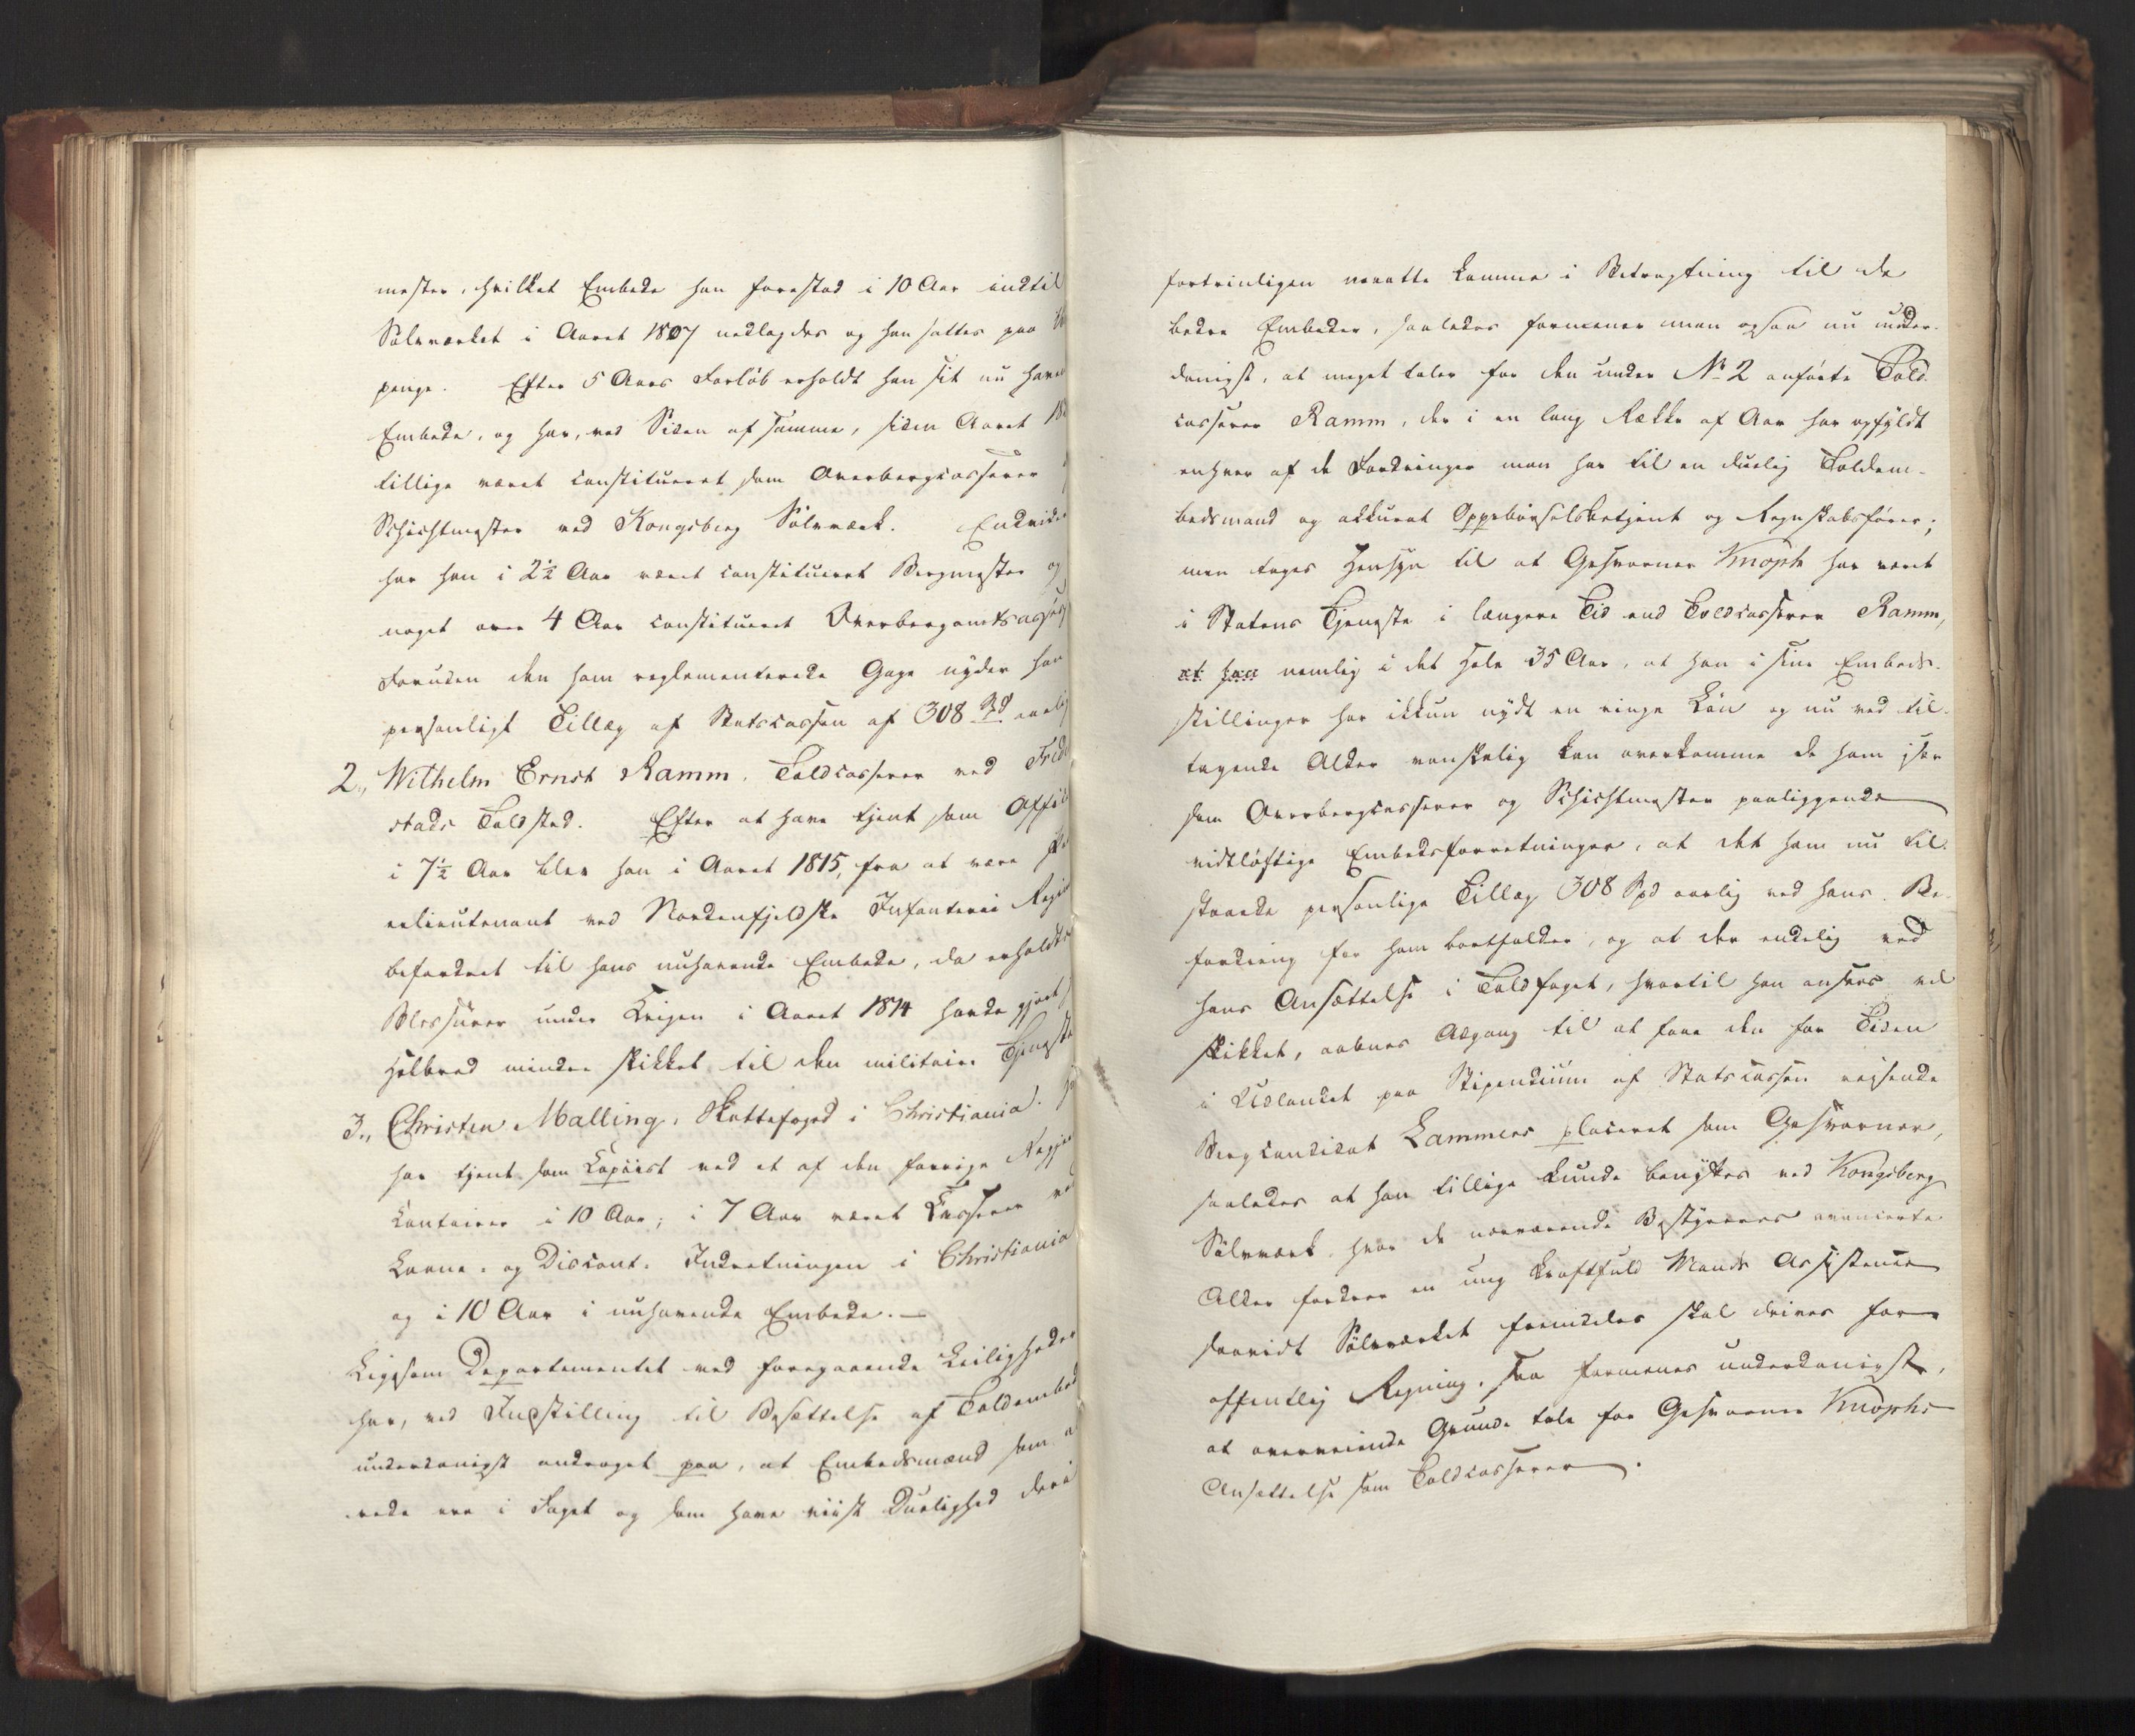 mester, hvilket Embede han forestod i 10 Aar indtil
Sølvværket i Aaret 1807 nedlagdes og han sattes paa
penge. Efter 5 Aars Forløb erholdt han sit nu hav
Embede, og har, ved Siden af samme, siden Aaret 18
tillige været constitueret som Overbergcasserer
Schichtmester ved Kongsberg Sølvværk. Endvider
har han i 2½ Aar været constitueret Bergmester og
noget over 4 Aar constitueret Overbergamtsassess
Foruden den ham reglementerede Gage nyder han
personligt Tillæg af Statscassen af 308 Spd aarlig
2., Wilhelm Ernst Ramm, Toldcasserer ved Fred
stads Toldsted. Efter at have tjent som Offi
i 7½ Aar blev han i Aaret 1815, fra at være
eerlieutenant ved Nordenfjeldske Infanterie Regi
befordret til hans nuhavende Embede, da erholdte
Blessurer under Krigen i Aaret 1814 havde gjort
Helbred mindre skikket til den militaire Tjeneste
3., Christen Malling, Skattefoged i Christiania.
har tjent som Copiist ved et af den forrige Regje
Contoirer i 10 Aar; i 7 Aar været Casserer ved
Laane- og Discont-Indretningen i Christiania
og i 10 Aar i nuhavende Embede. —
Ligesom Departementet ved foregaaende Leiligheder
har, ved Indstilling til Besættelse af Toldembed
underdanigst andraget paa, at Embedsmænd som a
rede ere i Faget og som have viist Duelighed deri
fortrinligen maatte komme i Betragtning til de
bedre Embeder, saaledes formener man ogsaa nu under-
danigst, at meget taler for den under No 2 anførte Told-
casserer Ramm, der i en lang Række af Aar har opfyldt
enhver af de Fordringer man har til en duelig Toldem-
bedsmand og akkurat Oppebørselsbetjent og Regnskabsfører;
men tages Hensyn til at Geschworner Knoph har været
i Statens Tjeneste i længere Tid end Toldcasserer Ramm,
at han nemlig i det Hele 35 Aar, at han i sine Embeds-
stillinger har ikkun nydt en ringe Løn og nu ved til-
tagende Alder vanskelig kan overkomme de ham især
som Overbergcasserer og Schichtmester paaliggende
vidtløftige Embedsforretninger, at det ham nu til-
staaede personlige Tillæg 308 Spd aarlig ved hans Be-
fordring for ham bortfalder, og at der endelig ved
hans Ansættelse i Toldfaget, hvortil han ansees vel
skikket, aabnes Adgang til at faae den for Tiden
i Udlandet paa Stipendium af Statscassen reisende
Bergcandidat Lammers placeret som Geschworner,
saaledes at han tillige kunde benyttes ved Kongsberg
Sølvværk, hvor de nærværende Bestyreres avancerte
Alder fordrer en ung kraftfuld Mands Assistence
saavidt Sølvværket fremdeles skal drives for
offentlig Regning, saa formenes underdanigst,
at overveiende Grunde tale for Geschworner Knophs
Ansættelse som Toldcasserer.